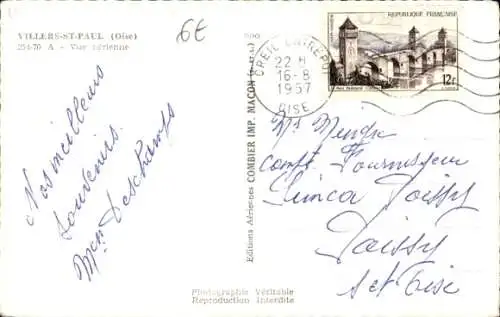 VILLERS-ST-PAUL (Oise)
254-70 A - Vue aérienne
6E
Nos meilleurs
souvenirs.
Deschamps
Editions Aériennes COMBIER IMP. MACON
CREIL ENTREPOT
22 H
16-8
1957
OISE
REPUBLIQUE FRANÇAISE
12F
Compt. Fournisseur
Simca Poissy
Poissy
S et Oise
Photographie Véritable
Reproduction Interdite